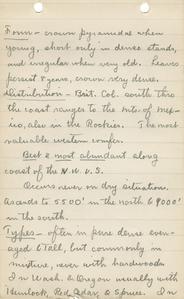 Form - crown pyramidal when
young, short only in dense stands,
and irregular when very old. Leaves
persist 8 years, crown very dense.
Distribution - Brit. Col. south thru
the coast ranges to the mts. of Mex-
ico, also in the Rockies. The most
valuable western conifer.
Best & most abundant along
coast of the N.W. U.S.
Occurs never on dry situation.
Ascends to 5500' in the north & 9000'
in the south.
Types - often in pure dense even-
aged & tall, but commonly in
mixture, never with hardwoods
In Wash. & Oregon usually with
Hemlock, Red Cedar, & Spruce. In